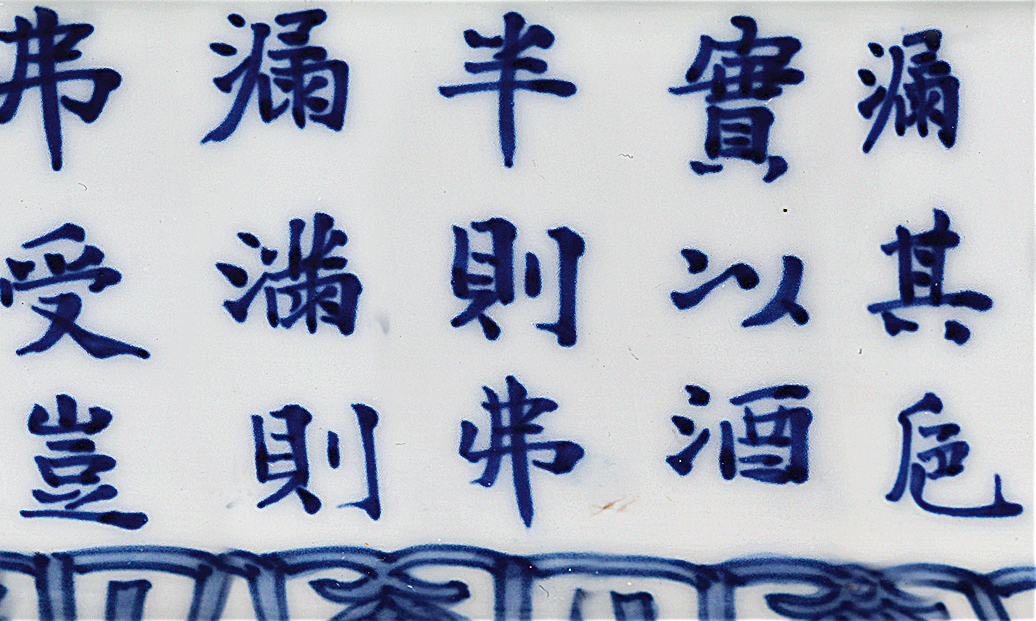 漏其卮
實以酒
半則弗
漏滿則
弗受豈